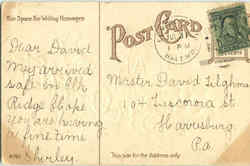 This Space For Writing Messages
POST CARD
Dear David
My arrived
safe in Elk
Ridge. Hope
you are having
a fine time
Shirley
Master David
104
Harrisburg
Pa.
This side for the Address only